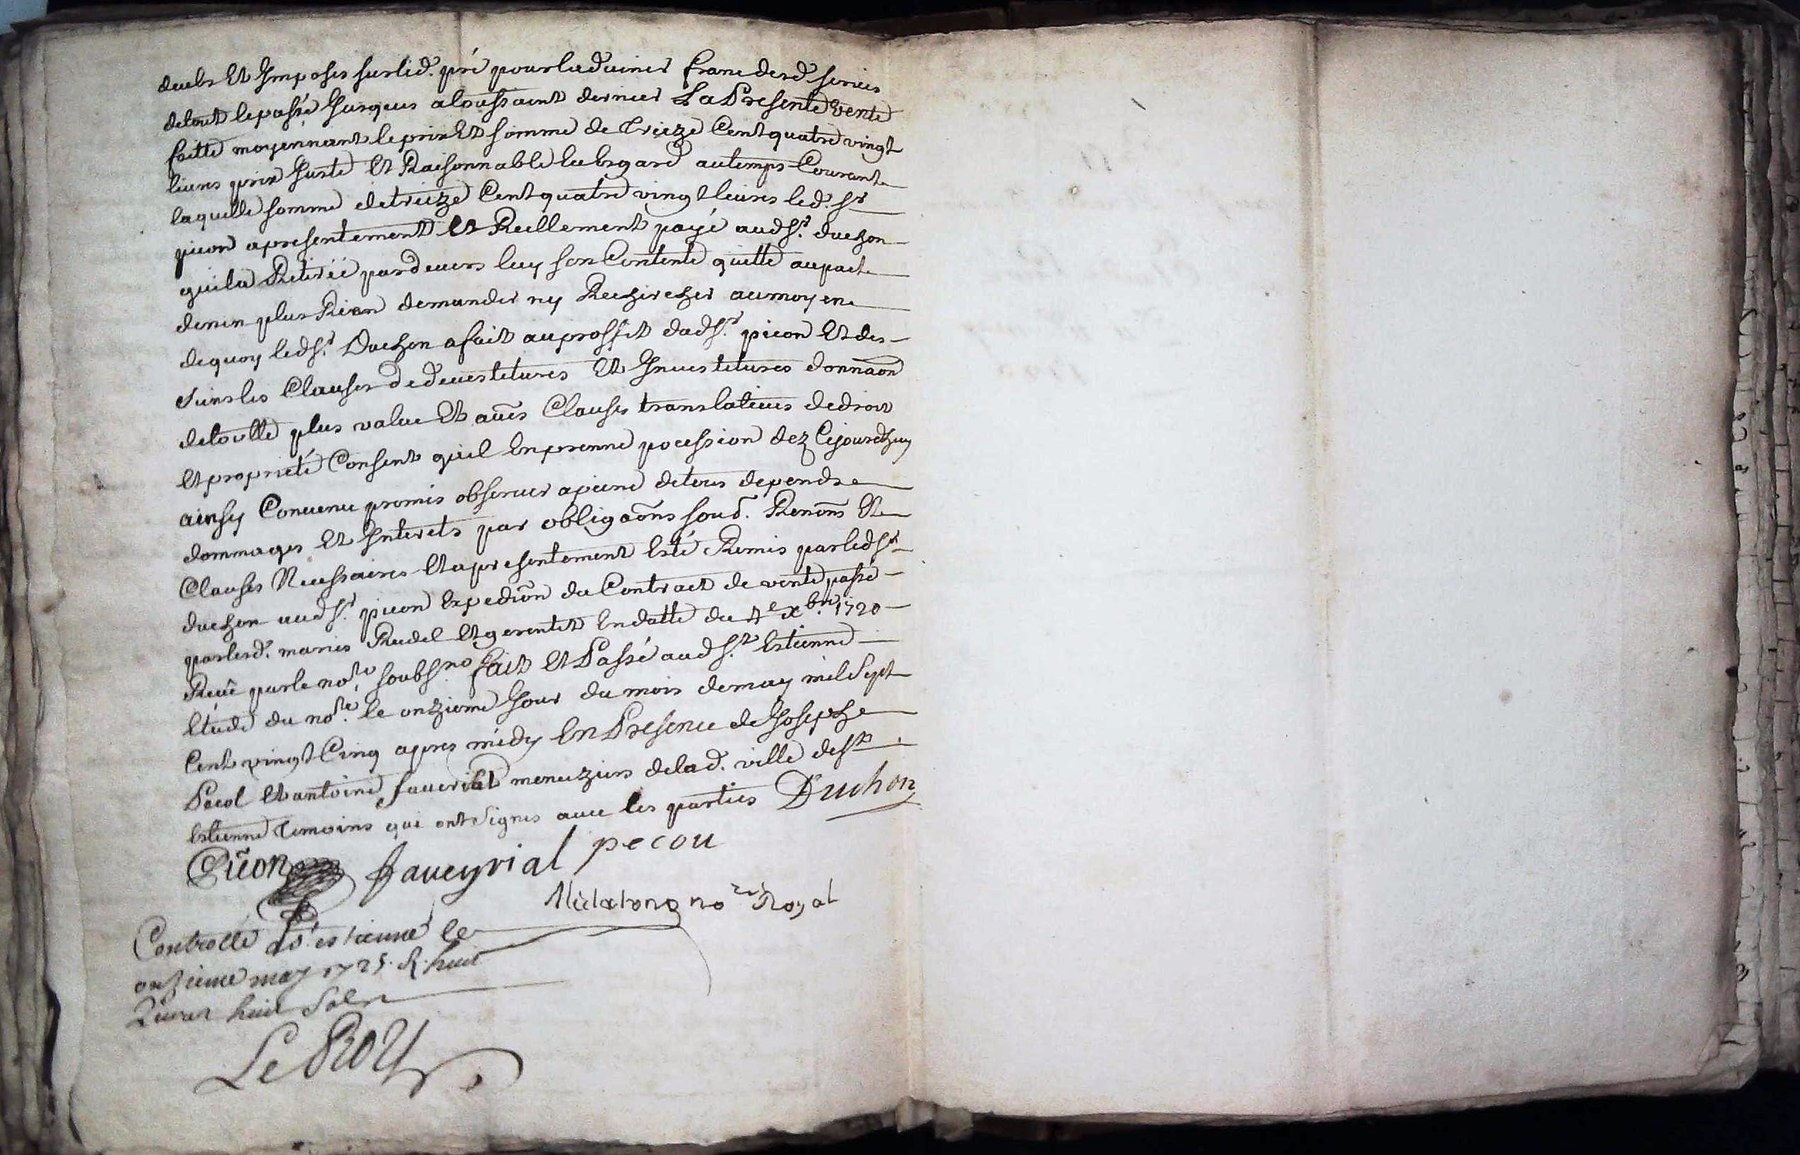 deubs Et Imposés surled. pré pour laduenir franc desd. servis
detout lepassé Jusques aloussaint dernier La Presente vente
faitte moyennant le prix Et somme de Treize Cent quatre vingt
livres prix Juste Et Raisonnable Eu Esgard autemps Courant
laquelle somme detreize Cent quatre vingt livres led. Sr
picon apresentement Et Reellement payé aud Sr. duchon
quila Retirée pardevers luy son Contente quitte aupact
denen plus Rien demander ny Rechercher aumoyen
dequoy led Sr. Duchon afait auproffit dud Sr. picon Et des
siens les Clauses dedevestitures Et Investitures donnaon
detoutte plus value Et aues Clauses translatives dedroit
Et proprieté Consent quil Enprenne pocession dez Cejourdhuy
ainsy Convenu promis observer apeine detous depends
dommages Et Interets par obligaons soud. Renons Et
Clauses Necessaires Et apresentement Esté Remis parled Sr
duchon aud Sr. picon Expedion du Contract de vente passé
parlesd. mariés Rudel Et gerentet Endatte du 4e xbre 1720
Receu parle nore soubsné fait Et Passé aud St. Estienne
Etude du nore. le onzieme Jour du mois demay mil Sept
Cent vingt Cinq apres midy En Presence de Joseph
Pacol Et antoine faverial menuziers delad. ville de St
Estienne Temoins que ont signés avec les parties Duchon
Picon faveyrial pecou
nore Royal
Controllé a St estienne le
onzieme may 1725. R. huit
Livres huit sols
Le Roy